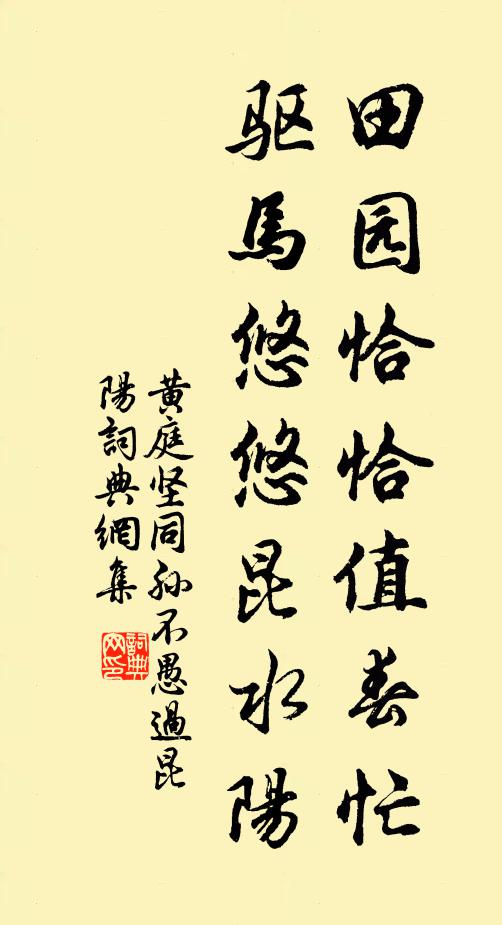 田园恰恰值春忙
驱馬悠悠昆水陽
黄庭坚同孙不愚過昆
陽詞典網集
詞典
网印